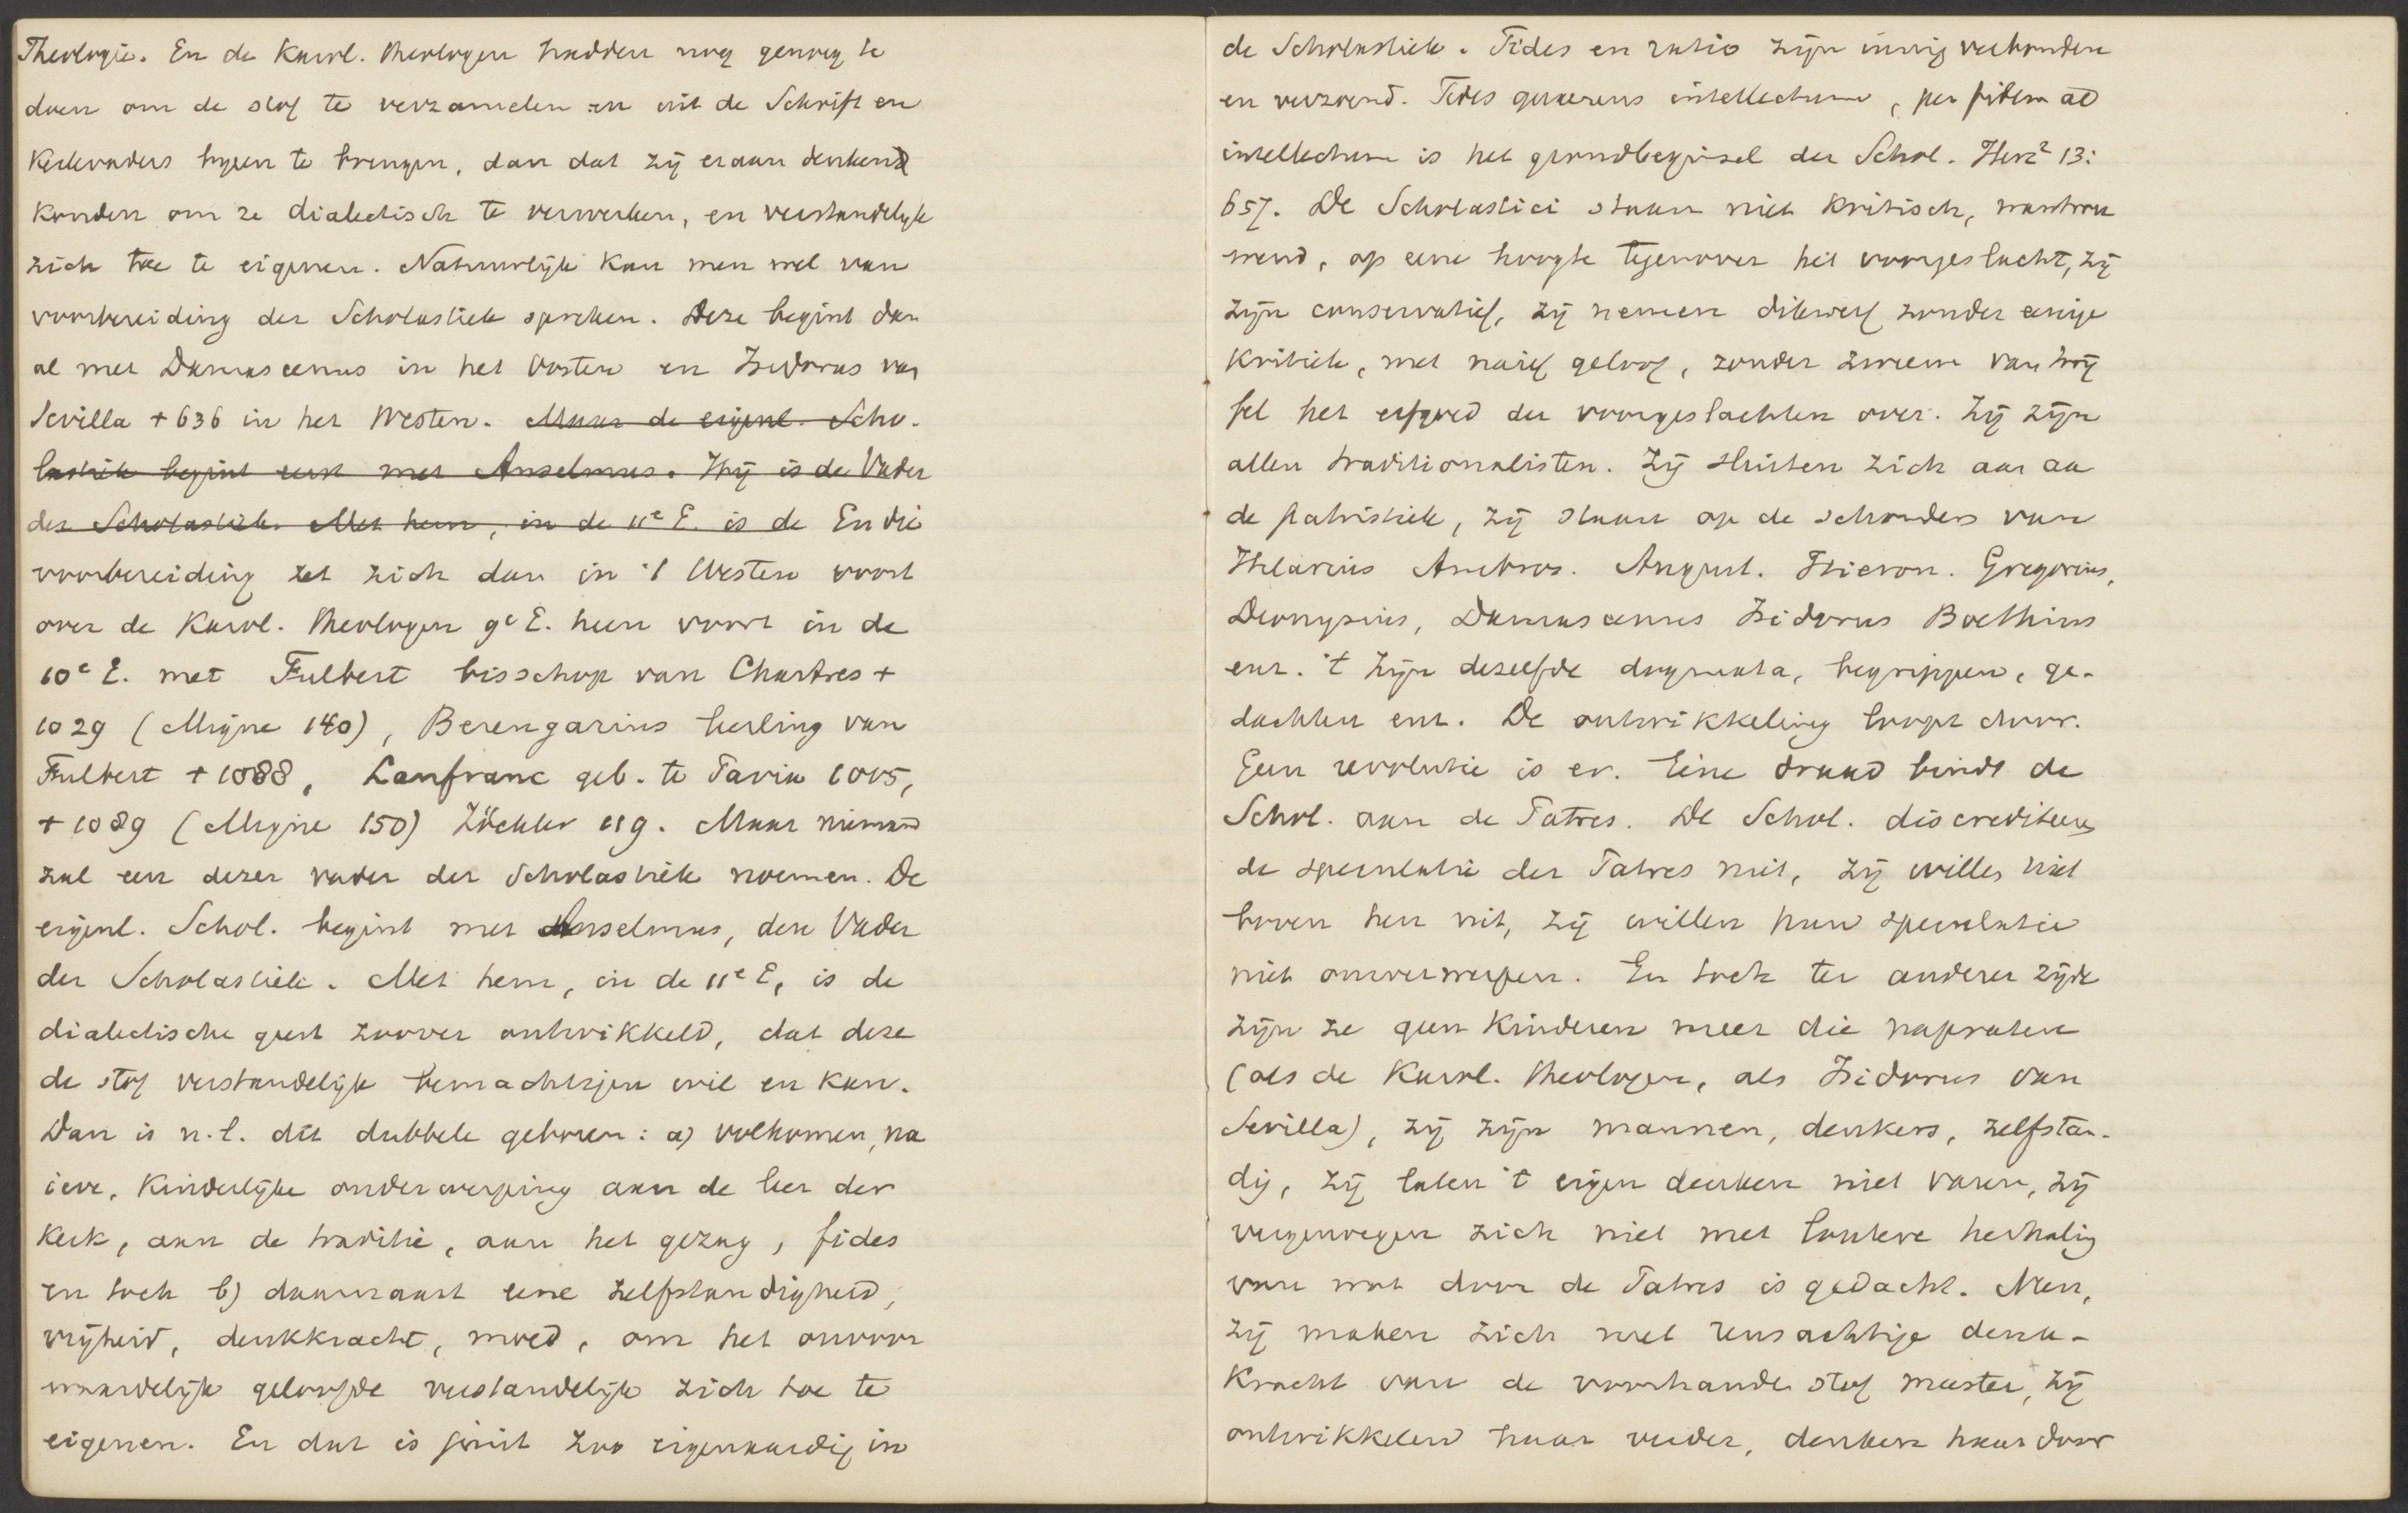 Theologie. En de Karol. theologen hadden nog genoeg te
doen om de stof te verzamelen en uit de Schrift en
Kerkvaders bijeen te brengen, dan dat zij eraan denken
konden om ze dialectisch te verwerken, en verstandelijk
zich toe te eigenen. Natuurlijk kan men wel van
voorbereiding der Scholastiek spreken. Deze begint dan
al met Damascenus in het Oosten en Isidorus van
Sevilla + 636 in het Westen. Maar de eigenl. Scho-
lastiek begint eerst met Anselmus. Hij is de Vader
der Scholastiek. Met hem, in de 11e E. is de En die
voorbereiding zet zich dan in 't Westen voort
over de Karol. theologen 9e E. heen voort in de
10e E. met Fulbert bisschop van Chartres +
1029 (Migne 140), Berengarius leerling van
Fulbert + 1088, Lanfranc geb. te Pavia 1005,
+ 1089 (Migne 150) Zöckler 119. Maar niemand
zal een dezer vader der Scholastiek noemen. De
eigenl. Schol. begint met Anselmus, den Vader
der Scholastiek. Met hem, in de 11e E, is de
dialectische geest zoover ontwikkeld, dat deze
de stof verstandelijk bemachtigen wil en kan.
Dan is n.l. dit dubbele geboren: a) volkomen, na
ieve, Kinderlijke onderwerping aan de leer der
Kerk, aan de traditie, aan het gezag, fides
en toch b) daarnaast eene zelfstandigheid,
vrijheid, denkkracht, moed, om het onvoor
waardelijk geloofde verstandelijk zich toe te
eigenen. En dat is juist zoo eigenaardig in
de Scholastiek. Fides en ratio zijn innig verbonden
en verzoend. Fides quaerens intellectum, per fidem ad
intellectum is het grondbeginsel der Schol. Herz² 13:
657. De Scholastici staan niet kritisch, wantrou
wend, op eene hoogte tegenover het voorgeslacht, zij
zijn conservatief, zij nemen dikwerf zonder eenige
Kritiek, met naief geloof, zonder zweem van twij
fel het erfgoed der voorgeslachten over. Zij zijn
allen traditionalisten. Zij sluiten zich aan aan
de patristiek, zij staan op de schouders van
Hilarius Ambros. August. Hieron. Gregorius,
Dionysius, Damascenus Isidorus Boethius
enz. 't Zijn dezelfde dogmata, begrippen, ge-
dachten enz. De ontwikkeling loopt door.
Geen revolutie is er. Eéne draad bindt de
Schol. aan de Patres. De Schol. discrediteeren
de speculatie der Patres niet, zij willen niet
boven hen uit, zij willen hun speculatie
niet omverwerpen. En toch ter anderer zijde
zijn ze geen Kinderen meer die napraten
(als de Karol. theologen, als Isidorus van
Sevilla), zij zijn mannen, denkers, zelfstan-
dig, zij laten 't eigen denken niet varen, zij
vergenoegen zich niet met loutere herhaling
van wat door de Patres is gedacht. Neen,
zij maken zich met reusachtige denk-
Kracht van de voorhanden stof meester, zij
ontwikkelen haar verder, denken haar door